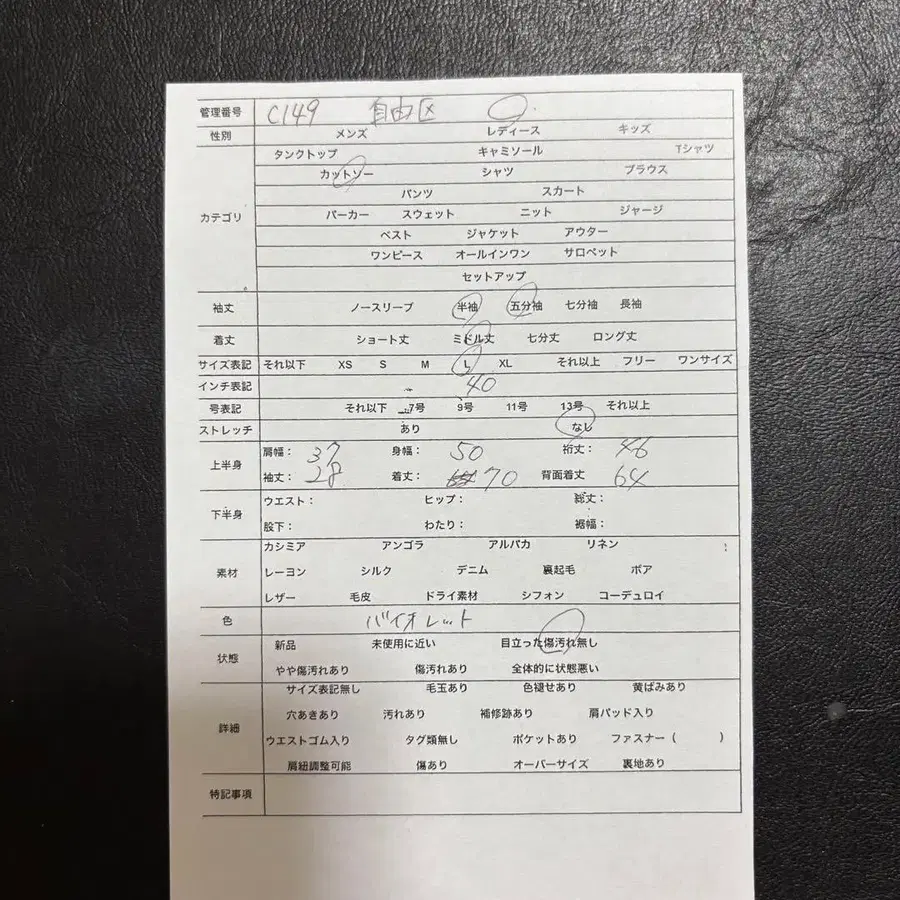 管理番号 C149 自由区
性別 メンズ レディース キッズ
タンクトップ キャミソール Tシャツ
カットソー シャツ ブラウス
パンツ スカート
カテゴリ パーカー スウェット ニット ジャージ
ベスト ジャケット アウター
ワンピース オールインワン サロペット
セットアップ
袖丈 ノースリーブ 半袖 五分袖 七分袖 長袖
着丈 ショート丈 ミドル丈 七分丈 ロング丈
サイズ表記 それ以下 XS S M L XL それ以上 フリー ワンサイズ
インチ表記 40
号表記 それ以下 7号 9号 11号 13号 それ以上
ストレッチ あり なし
上半身 肩幅: 37 身幅: 50 裄丈: 46
袖丈: 28 着丈: 70 背面着丈 64
下半身 ウエスト: ヒップ: 総丈:
股下: わたり: 裾幅:
カシミア アンゴラ アルパカ リネン
素材 レーヨン シルク デニム 裏起毛 ボア
レザー 毛皮 ドライ素材 シフォン コーデュロイ
色 バイオレット
状態 新品 未使用に近い 目立った傷汚れ無し
やや傷汚れあり 傷汚れあり 全体的に状態悪い
サイズ表記無し 毛玉あり 色褪せあり 黄ばみあり
詳細 穴あきあり 汚れあり 補修跡あり 肩パッド入り
ウエストゴム入り タグ類無し ポケットあり ファスナー( )
肩紐調整可能 傷あり オーバーサイズ 裏地あり
特記事項